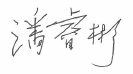 潘睿彬